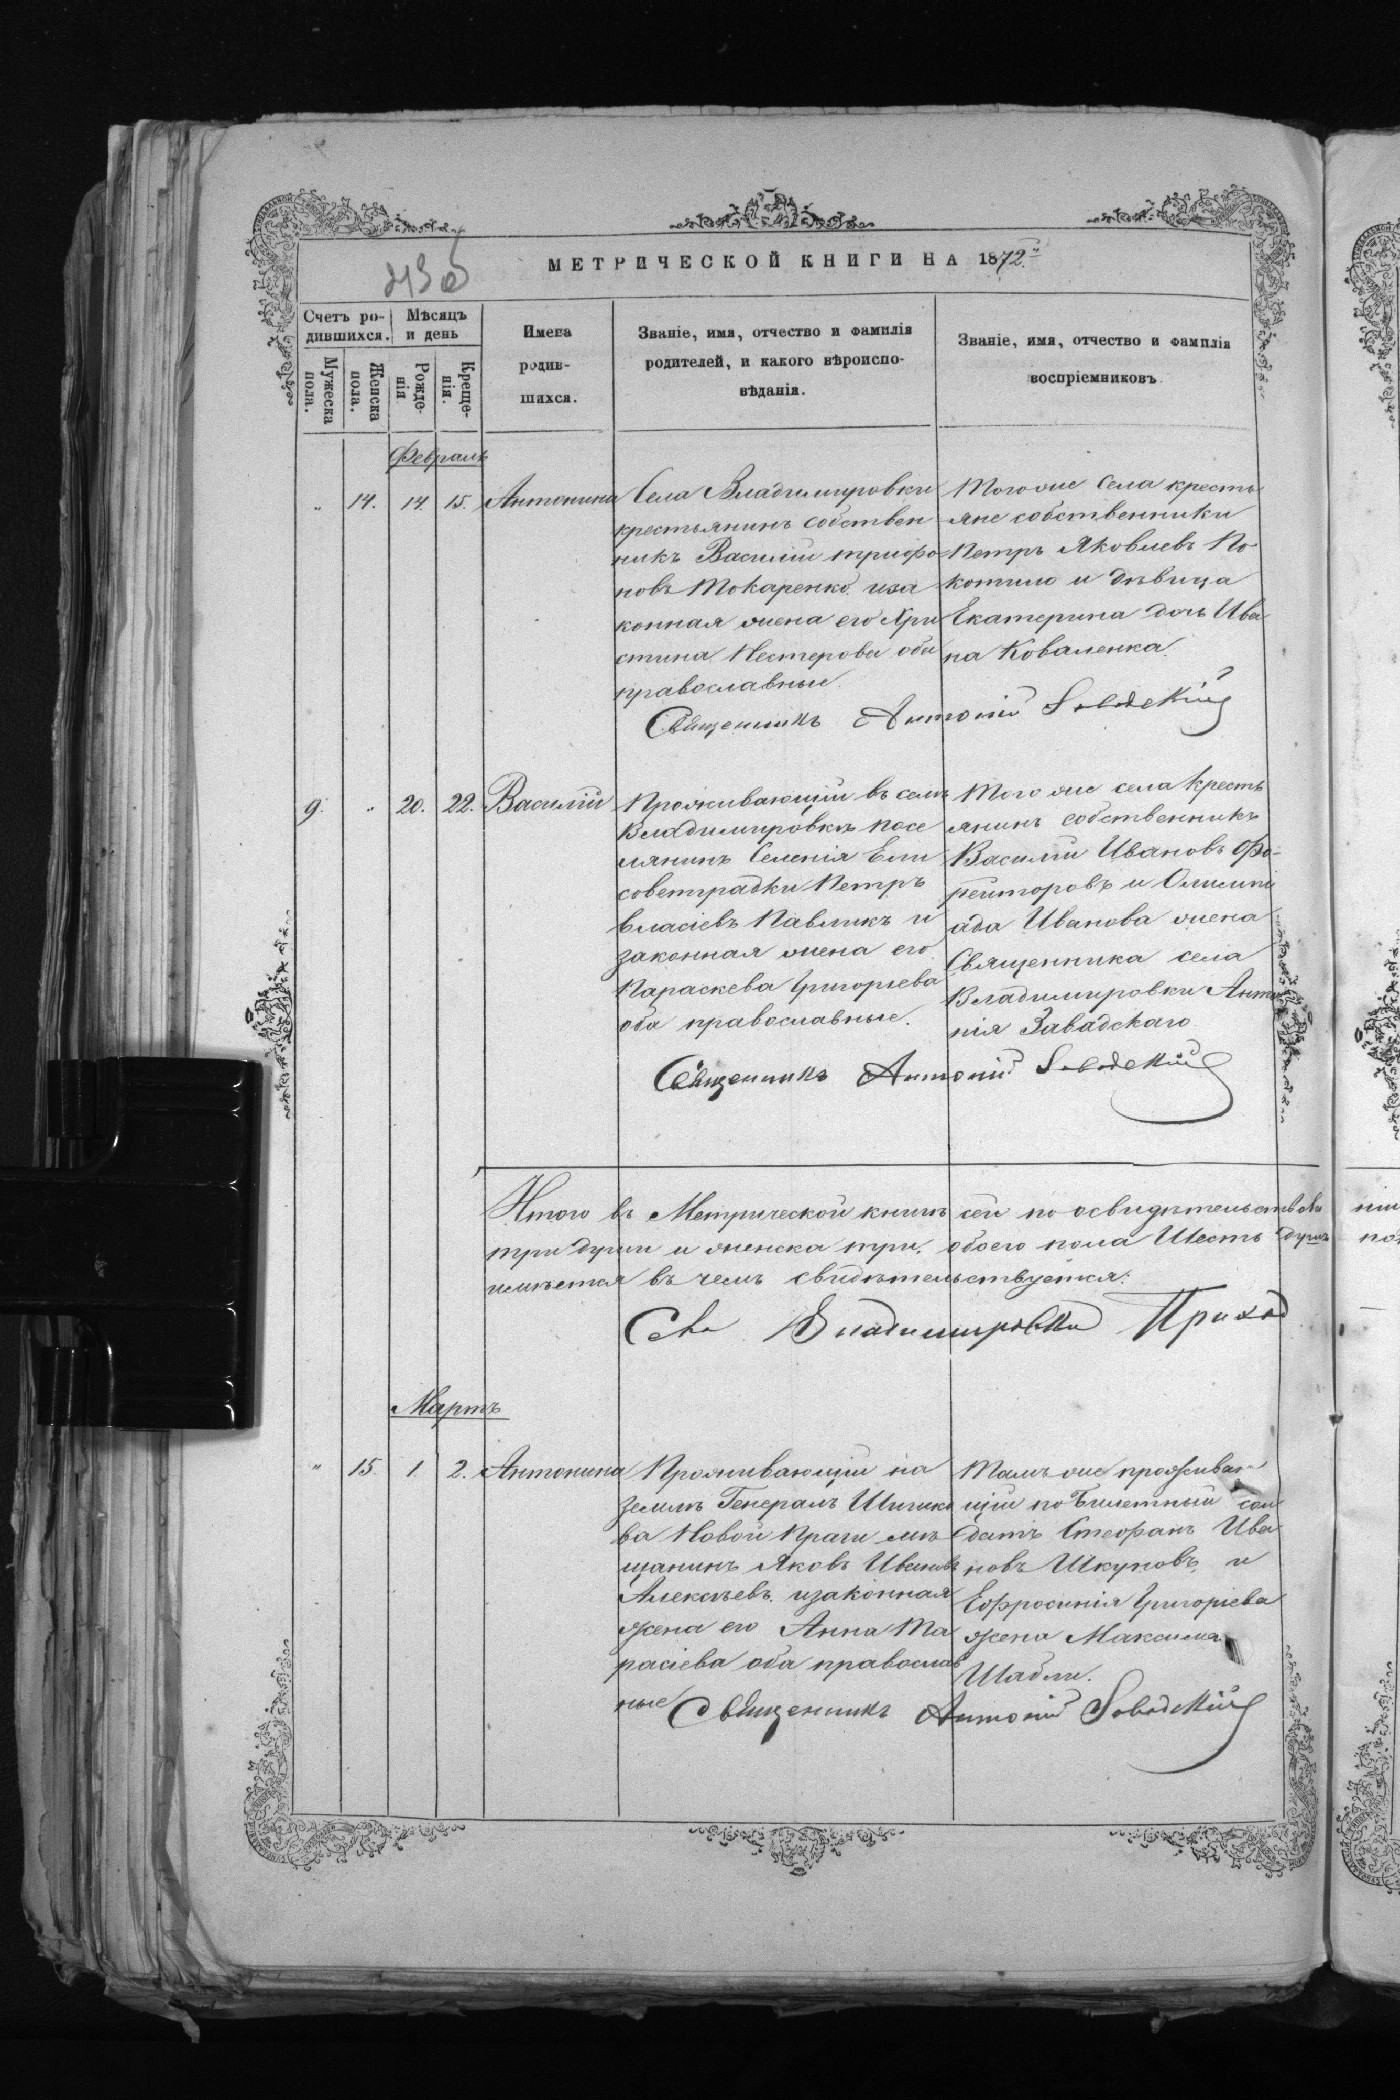 МЕТРИЧЕСКОЙ КНИГИ НА 1872.
Счетъ ро-
дившихся.
Мѣсяцъ
и день
Мужеска
пола.
Женска
пола.
Рожде-
нія
Креще-
нія.
Имена
родив-
шихся.
Званіе, имя, отчество и фамилія
родителей, и какого вѣроиспо-
вѣданія.
Званіе, имя, отчество и фамилія
воспріемниковъ
Февраль
" 14. 14. 15. Антонина
Села Владимировки
крестьянинъ собствен
никъ Василій Трифо
новъ Токаренко иза
конная жена его Хри
стина Нестерова оба
православные.
Того же Села кресть
яне собственники
Петръ Яковлевъ По
котило и дѣвица
Екатерина дочь Ива
на Коваленка.
Священникъ Антоній Завадскій
9. " 20. 22. Василій
Проживающій въ селѣ
Владимировкѣ посе
лянинъ Селенія Ели
советградки Петръ
Власіевъ Павликъ и
законная жена его
Параскева Григорьева
оба православные.
Того же села Кресть
янинъ собственникъ
Василій Ивановъ Фо-
рейторовъ и Олимпі
ада Иванова жена
Священника села
Владимировки Анто
нія Завадскаго
Священникъ Антоній Завадскій
Итого въ Метрической книгѣ сей по освидѣтельствова
три души и женска три, обоего пола Шесть душъ
имѣется въ чемъ свидѣтельствуется:
Села Владимировки Приход
Мартъ
" 15. 1. 2. Антонина
Проживающій на
землѣ Генералъ
ва Новой Праги мѣ
щанинъ Яковъ Ивановъ
Алексѣевъ изаконная
жена его Анна Та
расіева оба православ
ные
Тамъ же проживаю
щій по Билетный сол
датъ Стефанъ Ива
новъ Шкуповъ, и
Евфросинія Григоріева
жена Максима
Шабли.
Священникъ Антоній Завадскій